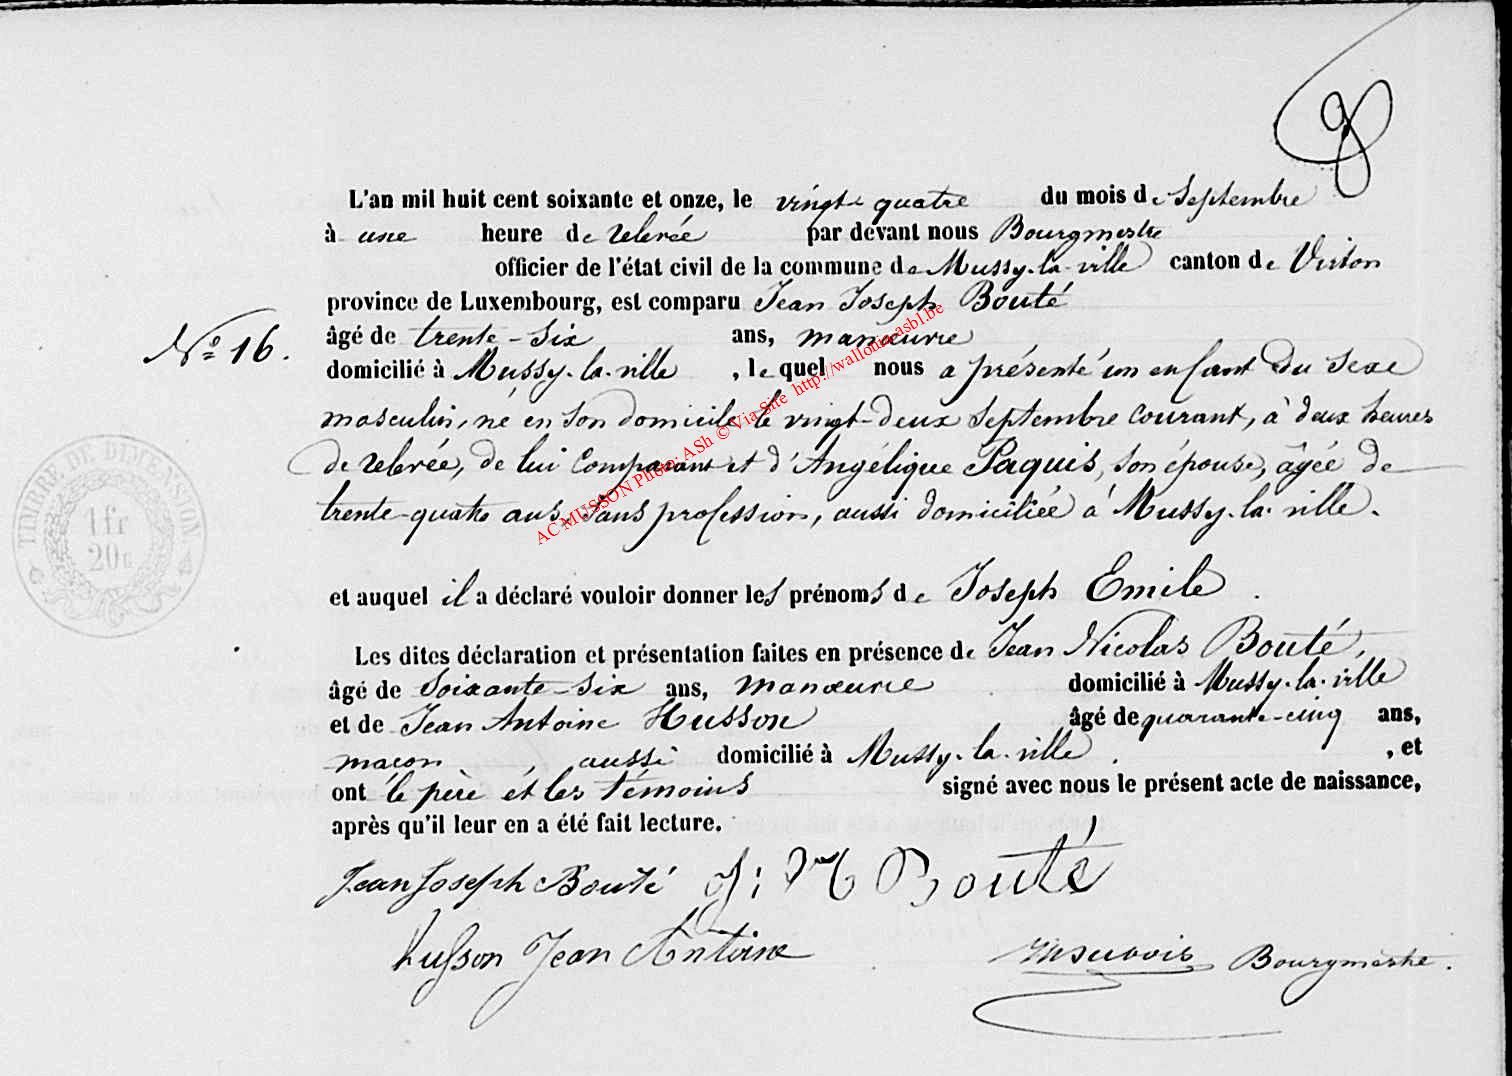 8
L'an mil huit cent soixante et onze, le vingt quatre du mois de Septembre
à une heure de relevée par devant nous Bourgmestre
officier de l'état civil de la commune de Mussy-la-ville canton de Virton
province de Luxembourg, est comparu Jean Joseph Bouté
N° 16.
âgé de trente-six ans, manœuvre
domicilié à Mussy-la-ville, lequel nous a présenté un enfant du sexe
masculin, né en son domicile le vingt-deux septembre courant, à deux heures
de relevée, de lui comparant et d'Angélique Paquis, son épouse, âgée de
trente-quatre ans, sans profession, aussi domiciliée à Mussy-la-ville.
et auquel il a déclaré vouloir donner les prénoms de Joseph Emile.
Les dites déclaration et présentation faites en présence de Jean Nicolas Bouté,
âgé de soixante-six ans, manœuvre domicilié à Mussy-la-ville
et de Jean Antoine Husson âgé de quarante-cinq ans,
maçon, aussi domicilié à Mussy-la-ville, et
ont le père et les témoins signé avec nous le présent acte de naissance,
après qu'il leur en a été fait lecture.
Jean Joseph Bouté J: N Bouté
husson Jean Antoine Bourgmestre.
TIMBRE DE DIMENSION
1 fr
20 c
AC MUSSON Photo: ASh © Via Site http://wallonia-asbl.be